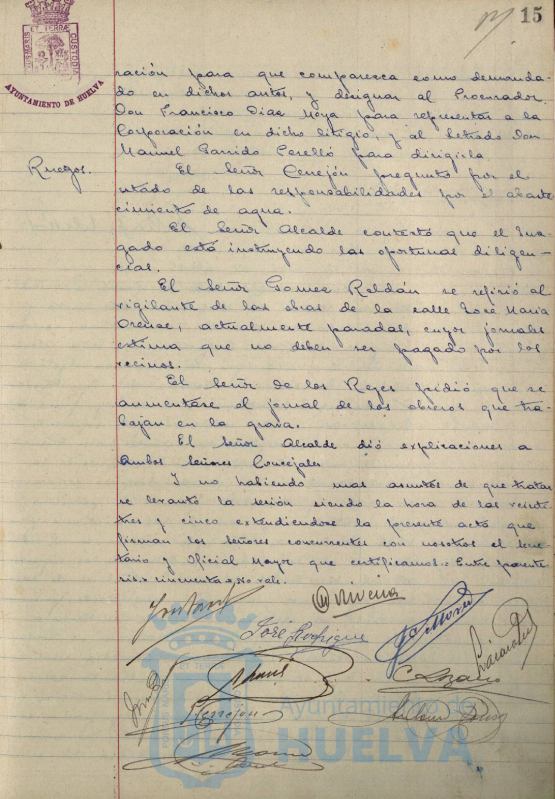 15
AYUNTAMIENTO DE HUELVA
ración para que comparezca como demanda-
do en dichos autos, y designar al Procurador
Don Francisco Diaz Moya para representar a la
Corporación en dicho litigio, y al letrado Don
Manuel Garrido Perelló para dirigirla
Ruegos.
El Señor Cerrejón preguntó por el
estado de las responsabilidades por el abaste-
cimiento de agua.
El Señor Alcalde contestó que el Juz-
gado está instruyendo las oportunas diligen-
cias.
El Señor Gomez Roldán se refirió al
vigilante de las obras de la calle José Maria
Orense, actualmente paradas, cuyos jornales
estima que no deben ser pagado por los
vecinos.
El Señor de los Reyes pidió que se
aumentase el jornal de los obreros que tra-
bajan en la grava.
El Señor Alcalde dió explicaciones a
ambos Señores Concejales
Y no habiendo mas asuntos de que tratar
se levantó la sesión siendo la hora de las veinte
tres y cinco extendiendose la presente acta que
firman los señores concurrentes con nosotros el Secre-
tario y Oficial Mayor que certificamos. Entre parente-
sis. cincuenta no vale.
José Rodriguez
Cerrejón
C. Lozano
Ayuntamiento de
HUELVA